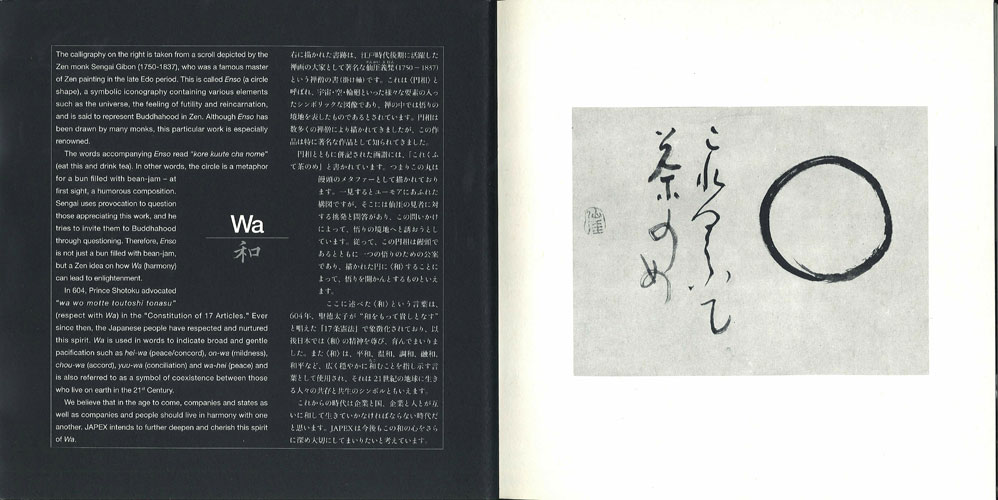 The calligraphy on the right is taken from a scroll depicted by the
Zen monk Sengai Gibon (1750-1837), who was a famous master
of Zen painting in the late Edo period. This is called Enso (a circle
shape), a symbolic iconography containing various elements
such as the universe, the feeling of futility and reincarnation,
and is said to represent Buddhahood in Zen. Although Enso has
been drawn by many monks, this particular work is especially
renowned.
The words accompanying Enso read "kore kuute cha nome"
(eat this and drink tea). In other words, the circle is a metaphor
for a bun filled with bean-jam – at
first sight, a humorous composition.
Sengai uses provocation to question
those appreciating this work, and he
tries to invite them to Buddhahood
through questioning. Therefore, Enso
is not just a bun filled with bean-jam,
but a Zen idea on how Wa (harmony)
can lead to enlightenment.
In 604, Prince Shotoku advocated
"wa wo motte toutoshi tonasu"
(respect with Wa) in the "Constitution of 17 Articles." Ever
since then, the Japanese people have respected and nurtured
this spirit. Wa is used in words to indicate broad and gentle
pacification such as hei-wa (peace/concord), on-wa (mildness),
chou-wa (accord), yuu-wa (conciliation) and wa-hei (peace) and
is also referred to as a symbol of coexistence between those
who live on earth in the 21st Century.
We believe that in the age to come, companies and states as
well as companies and people should live in harmony with one
another. JAPEX intends to further deepen and cherish this spirit
of Wa.
Wa
和
右に描かれた書跡は、江戸時代後期に活躍した
禅画の大家として著名な仙厓義梵(1750－1837)
という禅僧の書(掛け軸)です。これは〈円相〉と
呼ばれ、宇宙・空・輪廻といった様々な要素の入っ
たシンボリックな図像であり、禅の中では悟りの
境地を表したものであるとされています。円相は
数多くの禅僧により描かれてきましたが、この作
品は特に著名な作品として知られてきました。
円相とともに併記された画讃には、「これくふ
て茶のめ」と書かれています。つまりこの丸は
饅頭のメタファーとして描かれており
ます。一見するとユーモアにあふれた
構図ですが、そこには仙厓の見者に対
する挑発と問答があり、この問いかけ
によって、悟りの境地へと誘おうとし
ています。従って、この円相は饅頭で
あるとともに一つの悟りのための公案
であり、描かれた円に〈和〉することに
よって、悟りを開かんとするものといえ
ます。
ここに述べた〈和〉という言葉は、
604年、聖徳太子が“和をもって貴しとなす”
と唱えた「17条憲法」で象徴化されており、以
後日本では〈和〉の精神を尊び、育んでまいりま
した。また〈和〉は、平和、温和、調和、融和、
和平など、広く穏やかに和むことを指し示す言
葉として使用され、それは21世紀の地球に生き
る人々の共存と共生のシンボルともいえます。
これからの時代は企業と国、企業と人とが互
いに和して生きていかなければならない時代だ
と思います。JAPEXは今後もこの和の心をさら
に深め大切にしてまいりたいと考えています。
これくふて
茶のめ